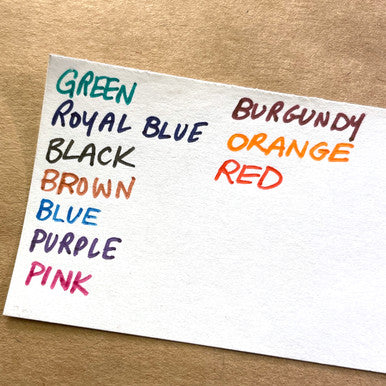 GREEN
ROYAL BLUE
BLACK
BROWN
BLUE
PURPLE
PINK
BURGUNDY
ORANGE
RED